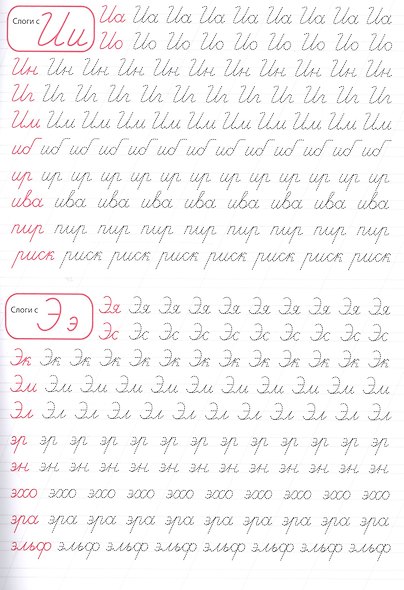 Слоги с Ии
Иа Иа Иа Иа Иа Иа Иа Иа Иа
Ио Ио Ио Ио Ио Ио Ио Ио Ио
Ин Ин Ин Ин Ин Ин Ин Ин Ин Ин Ин
Иг Иг Иг Иг Иг Иг Иг Иг Иг Иг Иг
Им Им Им Им Им Им Им Им Им Им Им
иб иб иб иб иб иб иб иб иб иб иб иб иб
ир ир ир ир ир ир ир ир ир ир ир ир
ива ива ива ива ива ива ива ива ива
пир пир пир пир пир пир пир пир пир
риск риск риск риск риск риск риск риск
Слоги с Ээ
Эя Эя Эя Эя Эя Эя Эя Эя Эя Эя
Эс Эс Эс Эс Эс Эс Эс Эс Эс Эс
Эк Эк Эк Эк Эк Эк Эк Эк Эк Эк Эк Эк Эк
Эм Эм Эм Эм Эм Эм Эм Эм Эм Эм Эм
Эл Эл Эл Эл Эл Эл Эл Эл Эл Эл Эл Эл
эр эр эр эр эр эр эр эр эр эр эр эр эр
эн эн эн эн эн эн эн эн эн эн эн эн эн
эхо эхо эхо эхо эхо эхо эхо эхо эхо эхо
эра эра эра эра эра эра эра эра эра эра
эльф эльф эльф эльф эльф эльф эльф эльф